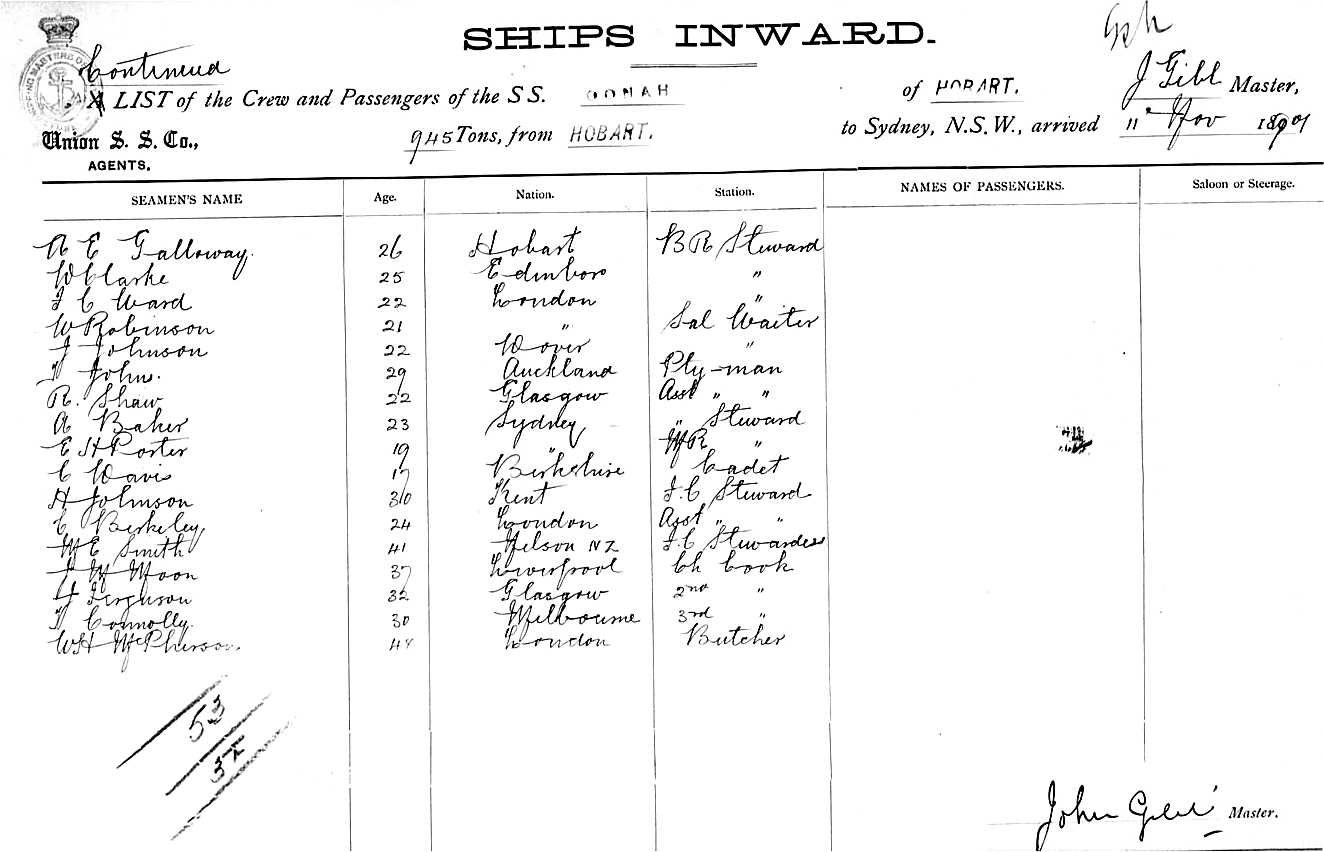 SHIPS INWARD.
Continued
A LIST of the Crew and Passengers of the S S. OONAH of HOBART. J Gibb Master,
Union S. S. Co., AGENTS. 945 Tons, from HOBART. to Sydney, N.S.W., arrived 11" Nov 1901
SEAMEN'S NAME Age. Nation. Station. NAMES OF PASSENGERS. Saloon or Steerage.
A E Galloway. 26 Hobart B R Steward
W Clarke 25 Edinboro "
F C Ward 22 London "
W Robinson 21 " Sal Waiter
J Johnson 22 Dover "
T John. 29 Auckland Pty-man
R. Shaw 22 Glasgow Asst " "
A Baker 23 Sydney " Steward
E H Porter 19 " M R "
C Davis 17 Berkshire Cadet
H Johnson 30 Kent F. C Steward
C Berkeley 24 London Asst " "
M E Smith 41 Nelson NZ F. C Stewardess
J W Moon 37 Liverpool Ch Cook
J Ferguson 32 Glasgow 2nd "
T Connolly. 30 Melbourne 3rd "
W H McPherson 48 London Butcher
53
John Gibb Master.